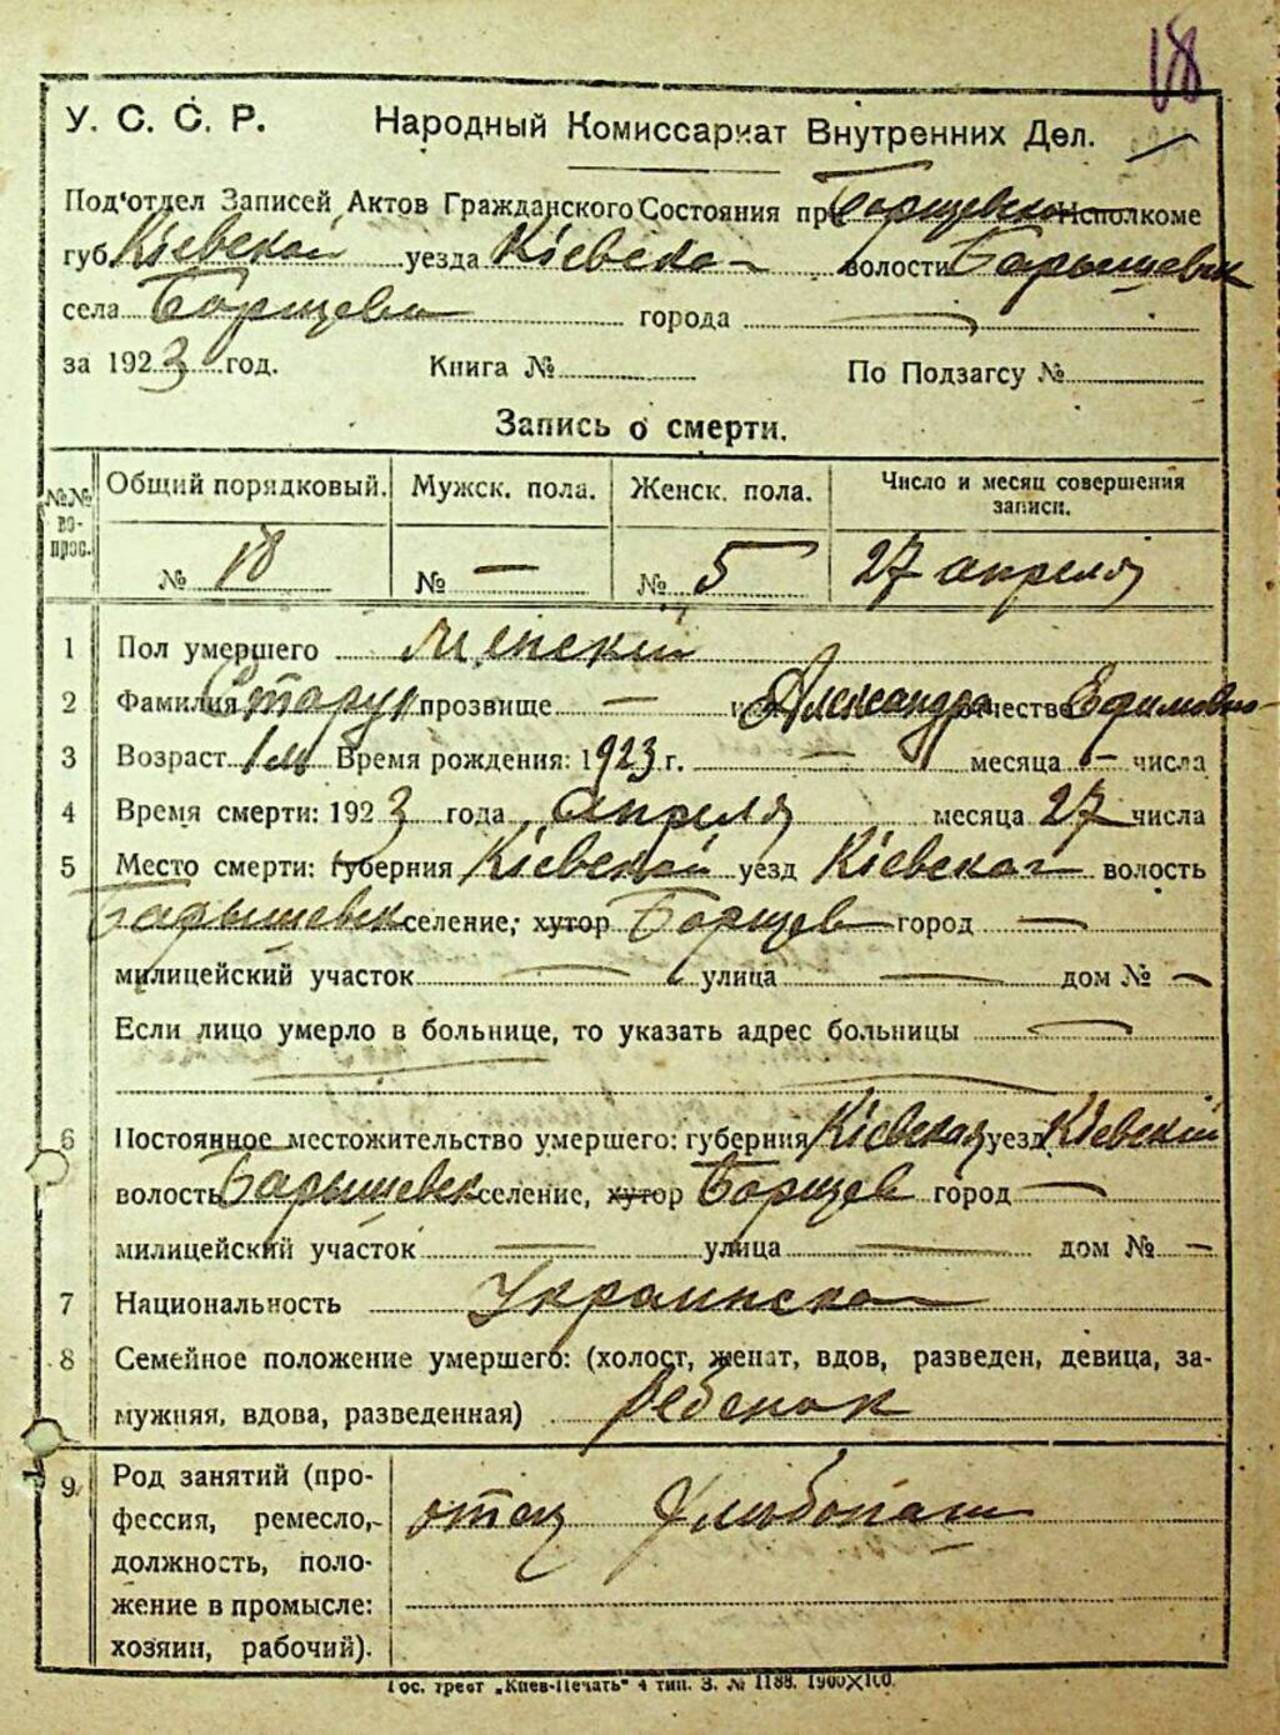 18
У. С. С. Р. Народный Комиссариат Внутренних Дел.
Под'отдел Записей Актов Гражданского Состояния при Исполкоме
губ. Кіевской уезда Кіевско- волости Барышевск
села Борщева города —
за 1923 год. Книга № По Подзагсу №
Запись о смерти.
№№ вопрос. Общий порядковый. Мужск. пола. Женск. пола. Число и месяц совершения записи.
№ 18 № — № 5 27 апреля
1 Пол умершего Женскій
2 Фамилия Старук прозвище — Александра отчество Ефимовна
3 Возраст 1 м Время рождения: 1923 г. — месяца — числа
4 Время смерти: 1923 года апреля месяца 27 числа
5 Место смерти: губерния Кіевской уезд Кіевской волость
Барышевск селение; хутор Борщев город —
милицейский участок — улица — дом № —
Если лицо умерло в больнице, то указать адрес больницы —
6 Постоянное местожительство умершего: губерния Кіевская уезд Кіевскій
волость Барышевск селение, хутор Борщев город —
милицейский участок — улица — дом № —
7 Национальность Украинская
8 Семейное положение умершего: (холост, женат, вдов, разведен, девица, за-
мужняя, вдова, разведенная) Ребенок
9 Род занятий (про-
фессия, ремесло, отец Хлебопаш
должность, поло-
жение в промысле:
хозяин, рабочий).
Гос. трест „Киев-Печать" 4 тип. З. № 1188. 1900×100.